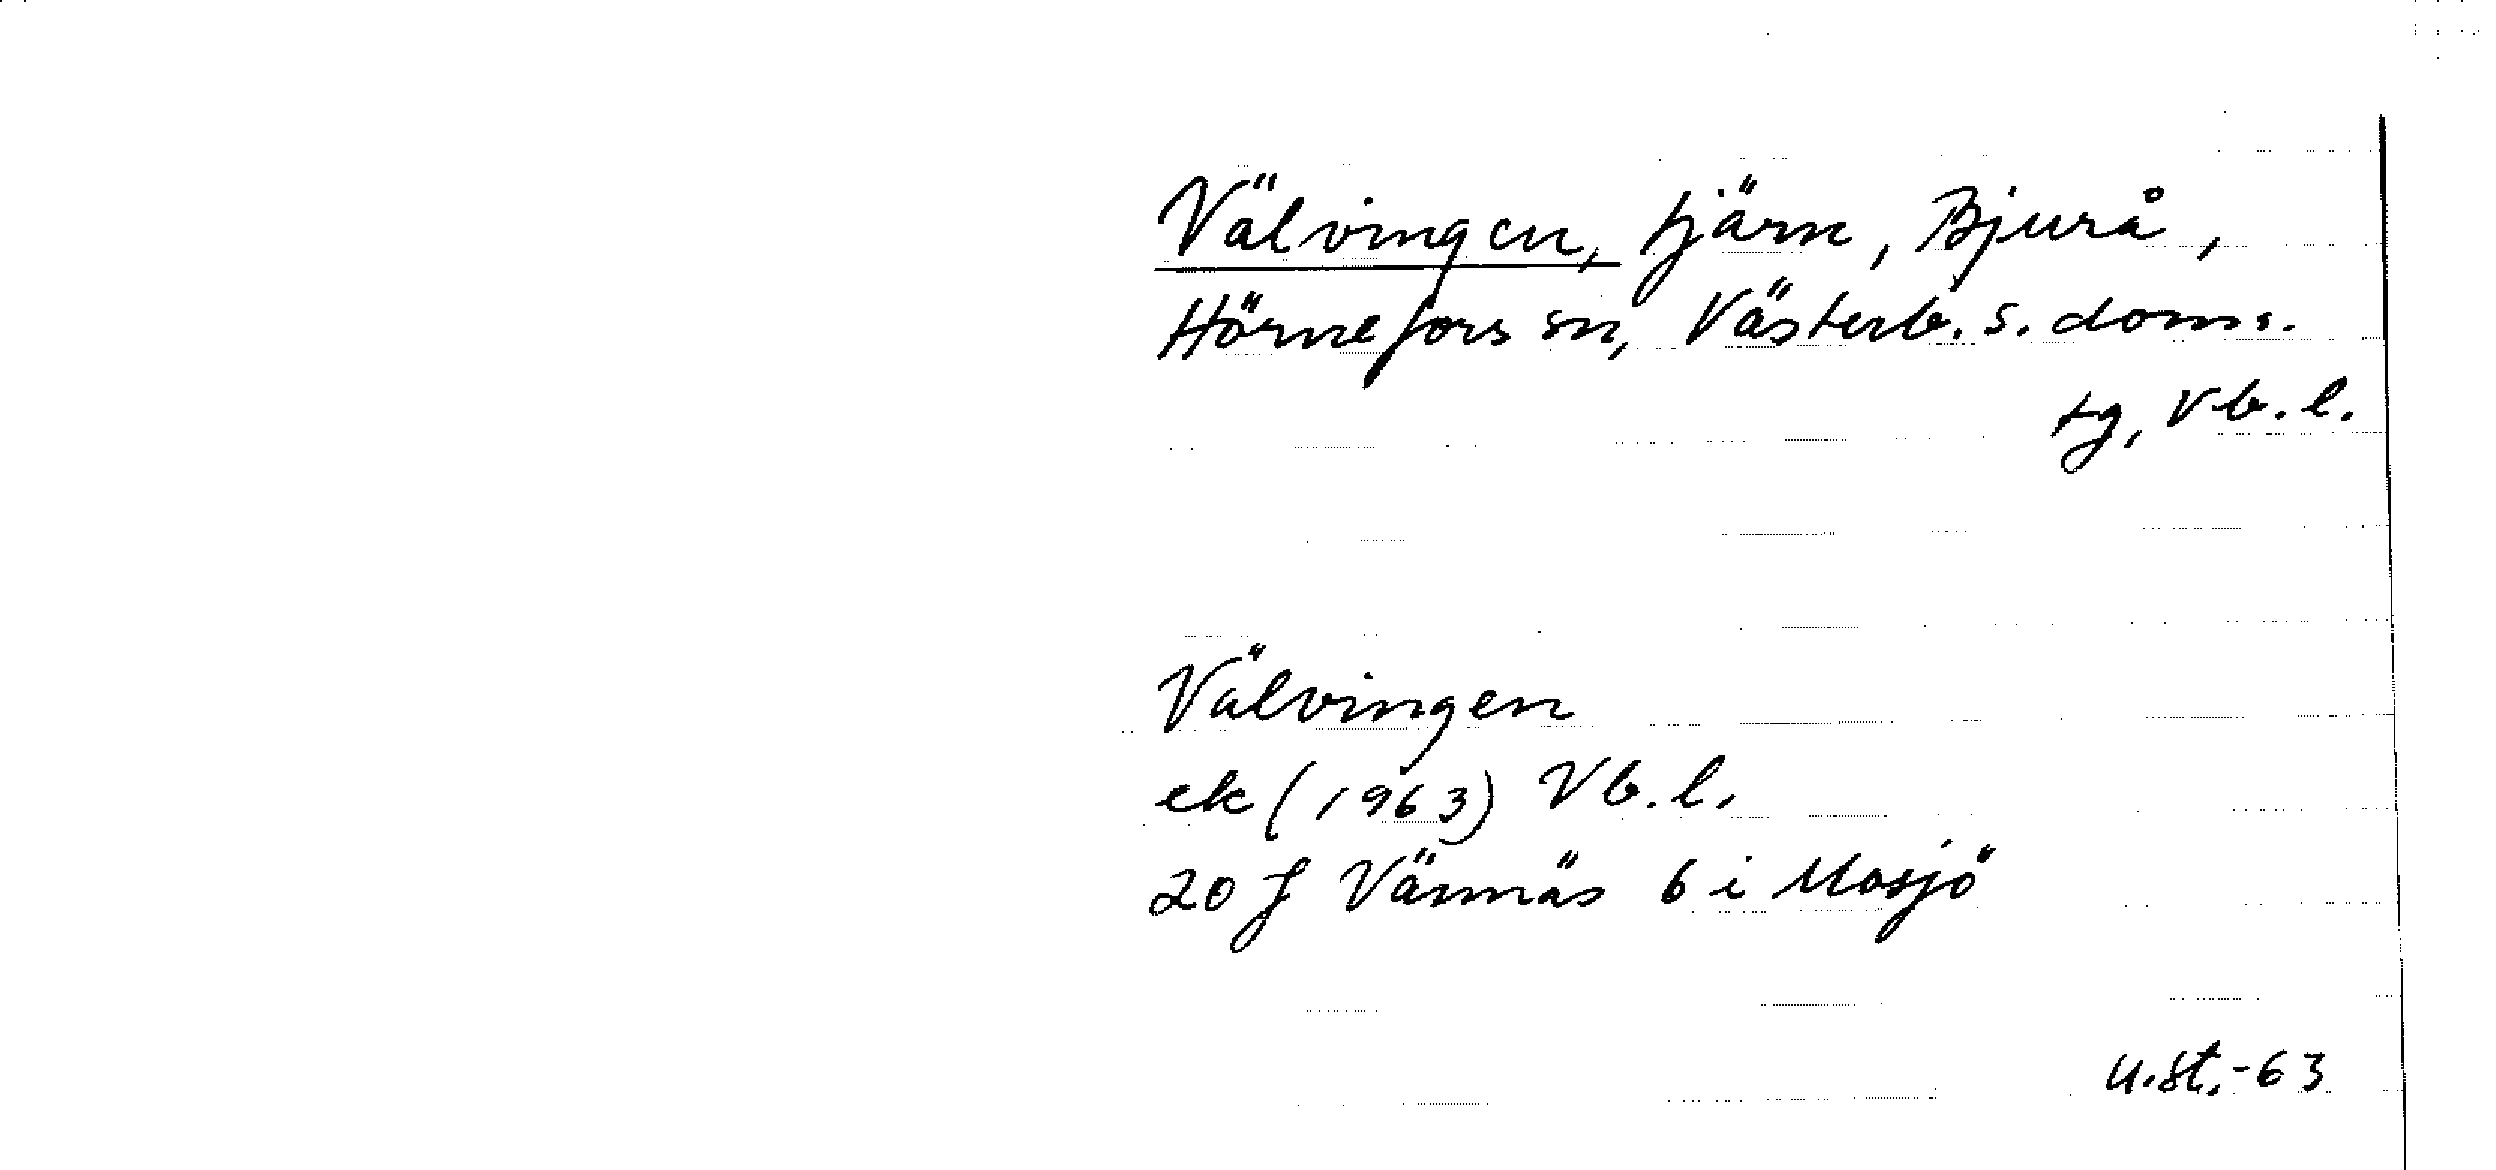 Välvingen, tjärn, Bjurå,
Hörnefors sn, Västerb. s. doms.
tg, Vb. l.
Välvingen
ek (1963) Vb. l.
20 J Vännäs 6 i Mosjö
u. st. -63